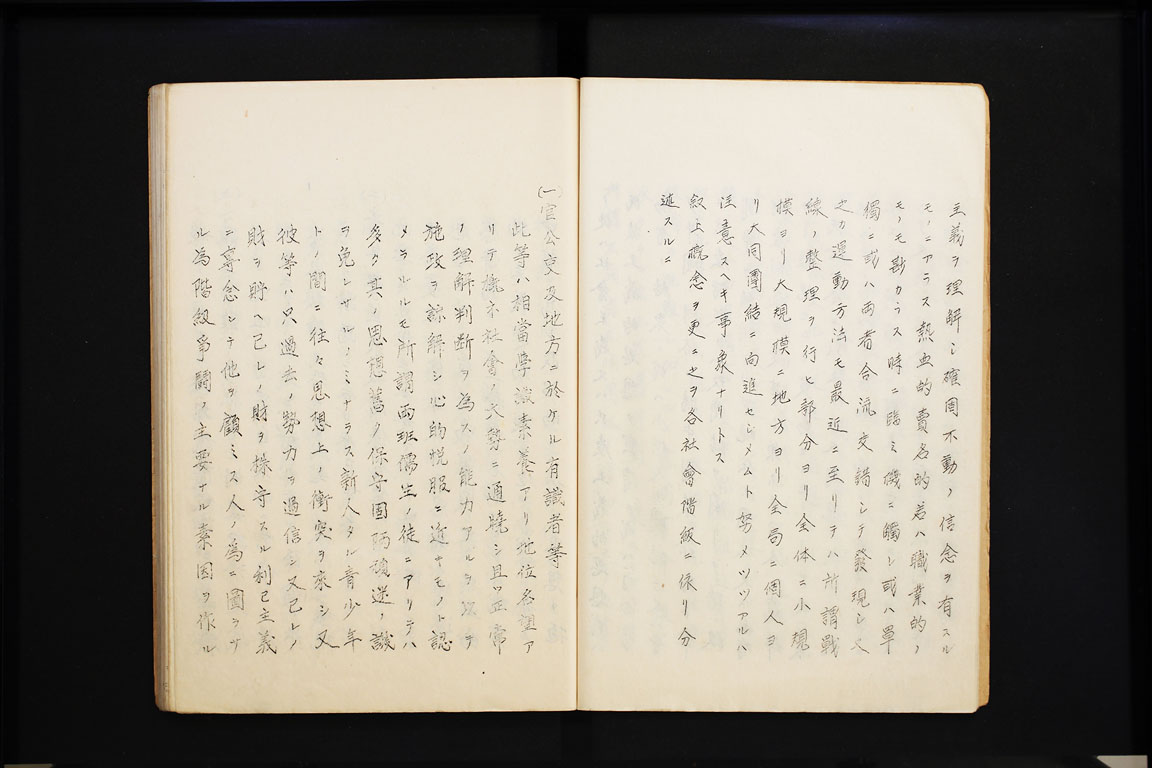 主義ヲ理解シ確固不動ノ信念ヲ有スル
モノニアラス熱血的賣名的若ハ職業的ノ
モノモ尠カラス時ニ臨ミ機ニ觸レ或ハ單
獨ニ或ハ両者合流交錯シテ發現シ又
之カ運動方法モ最近ニ至リテハ所謂戰
線ノ整理ヲ行ヒ部分ヨリ全体ニ小規
模ヨリ大規模ニ地方ヨリ全局ニ個人ヨ
リ大同團結ニ向進セシメムト努メツツアルハ
注意スヘキ事象ナリトス
叙上概念ヲ更ニ之ヲ各社會階級ニ依リ分
述スルニ
(一)官公吏及地方ニ於ケル有識者等
此等ハ相當學識素養アリ地位名望ア
リテ概ネ社會ノ大勢ニ通曉シ且ツ正常
ノ理解判斷ヲ為スノ能力アルヲ以テ
施政ヲ諒解シ心的悦服ニ近キモノト認
メラルルモ所謂両班儒生ノ徒ニアリテハ
多ク其ノ思想舊ク保守固陋頑迷ノ譏
ヲ免レサルノミナラス新人タル青少年
トノ間ニ往々思想上ノ衝突ヲ来シ又
彼等ハ只過去ノ勢力ヲ過信シ又己レノ
財ヲ貯ヘ己レノ財ヲ操守スル利己主義
ニ專念シテ他ヲ顧ミス人ノ為ニ圖ラサ
ル為階級爭鬪ノ主要ナル素因ヲ作ル